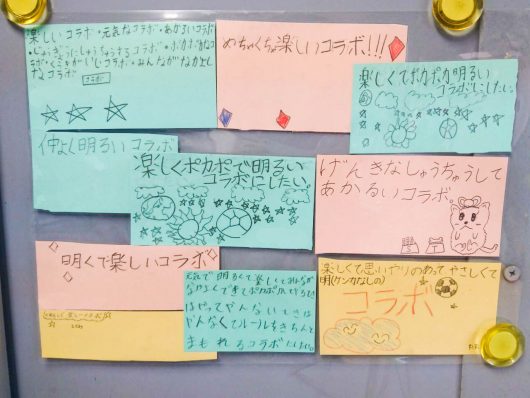 楽しいコラボ・元気なコラボ・あかるいコラボ
・じょうぎょうにしゅうちゅうするコラボ・ポカポカなコ
ラボ・くうきがいいコラボ・みんながなかよし
なコラボ
コラボ
めちゃくちゃ楽しいコラボ!!!
楽しくてポカポカ明るい
コラボにしたい。
仲よく明るいコラボ
楽しくポカポカで明るい
コラボにしたい。
げんきなしゅうちゅうして
あかるいコラボ
明くて楽しいコラボ
元気で明るくて楽しくてみんなが
なかよくできてポカポカ
はやってやんないときは
やんなくてルールをきちんと
まもれるコラボにしたい。
楽しくて思いやりのあってやさしくて
明(ケンカなしの)
コラボ